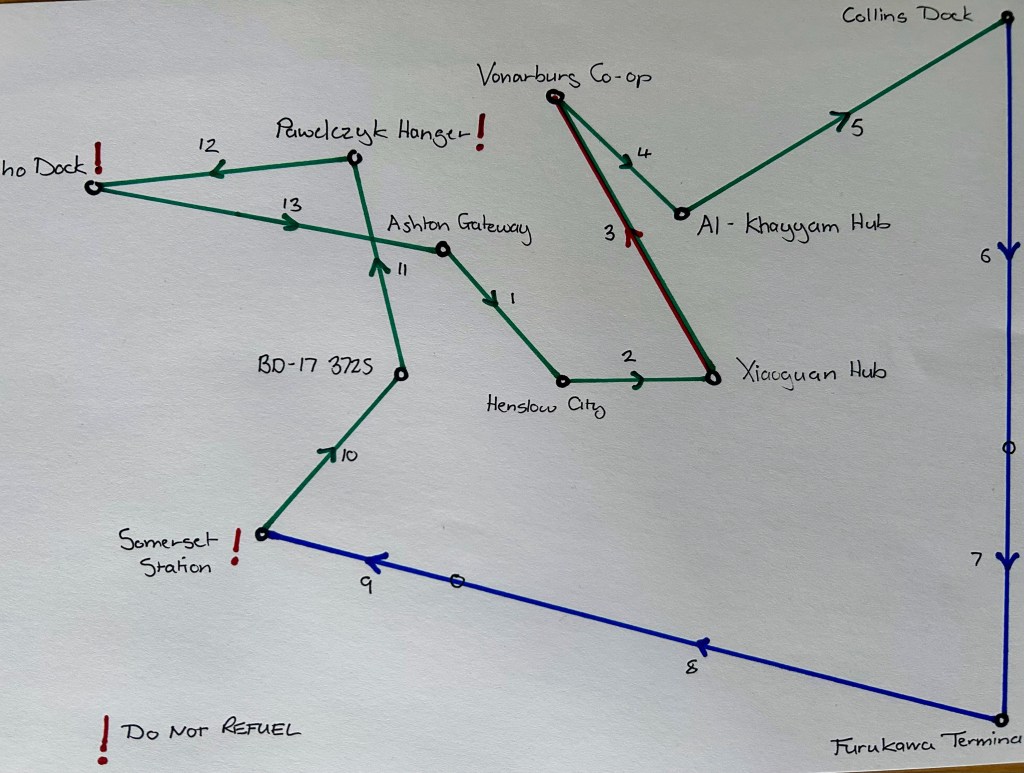 Collins Dock
Vonarburg Co-op
Pawelczyk Hanger!
12
ho Dock!
4
5
13
Ashton Gateway
Al-Khayyam Hub
3
6
11
1
BD-17 3725
2
Xiaoguan Hub
Henslow City
10
Somerset
Station !
7
9
8
! DO NOT REFUEL
Furukawa Termina